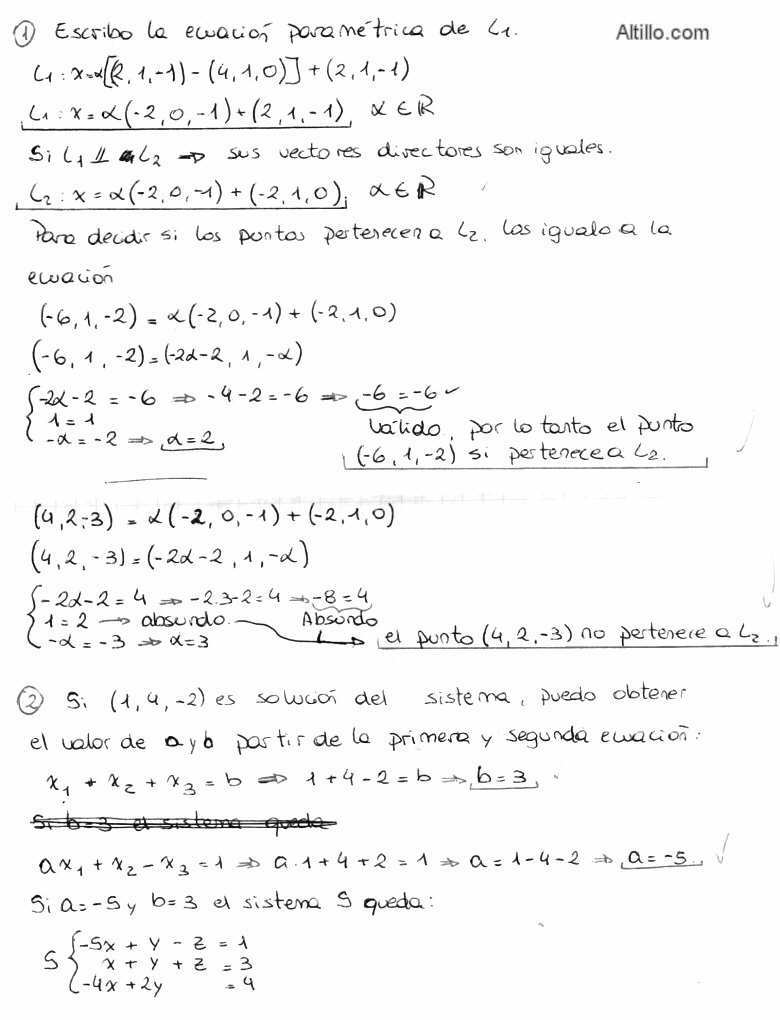 ① Escribo la ecuación paramétrica de L1.
Altillo.com
L1 : x=α[(2,1,-1) - (4,1,0)] + (2,1,-1)
L1 : x=α(-2,0,-1)+(2,1,-1), α∈ℝ
Si L1 ∥ a L2 ⇒ sus vectores directores son iguales.
L2 : x=α(-2,0,-1)+(-2,1,0), α∈ℝ
Para decidir si los puntos pertenecen a L2, los igualo a la
ecuación
(-6,1,-2) = α(-2,0,-1)+(-2,1,0)
(-6,1,-2)=(-2α-2, 1, -α)
-2α-2 = -6 ⇒ -4-2=-6 ⇒ -6=-6 ✓
1=1
-α=-2 ⇒ α=2
Válido, por lo tanto el punto
(-6,1,-2) si pertenece a L2.
(4,2,-3) = α(-2,0,-1)+(-2,1,0)
(4,2,-3)=(-2α-2, 1, -α)
-2α-2=4 ⇒ -2.3-2=4 ⇒ -8=4
1=2 → absurdo. Absurdo
-α=-3 ⇒ α=3 → el punto (4,2,-3) no pertenece a L2.
② Si (1,4,-2) es solución del sistema, puedo obtener
el valor de a y b partir de la primera y segunda ecuación:
x1 + x2 + x3 = b ⇒ 1+4-2=b ⇒ b=3
Si b=3 el sistema queda
ax1 + x2 - x3 = 1 ⇒ a.1+4+2=1 ⇒ a=1-4-2 ⇒ a=-5
Si a=-5 y b=3 el sistema S queda:
S { -5x + y - z = 1
x + y + z = 3
-4x+2y = 4